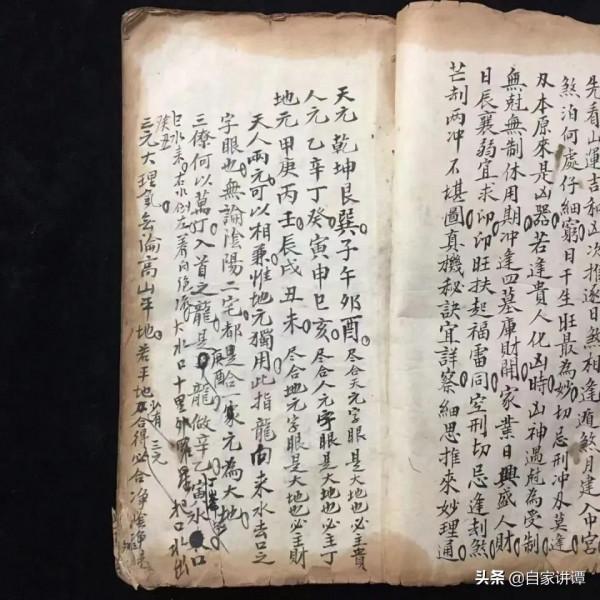 先看山運吉和凶次推逐日煞相逢遁煞月建入中宮
煞泊何處仔細窮日干生旺最為妙切忌刑冲及莫逢
及本原來是凶器若逢貴人化凶時山神遇尅為受制
無尅無制休用期冲逢四墓庫財開家業日興盛人財
日辰衰弱宜求印印旺扶起福雷同空刑切忌逢刻煞
芒刦两冲不堪圖真機秘訣宜詳察細思推來妙理通
天元乾坤艮巽子午卯酉尽合天元字眼是大地也必主貴
人元乙辛丁癸寅申巳亥尽合人元字眼是大地也必主丁
地元甲庚丙壬辰戌丑未尽合地元字眼是大地也必主財
天人兩元可以相兼惟地元獨用此指龍向来水去口之
字眼也無論陰陽二宅都是合家元為大地
三僚何以萬丁入首之龍是龍做辛乙寅水口
巳水来右水倒左大水口十里外羅星把口水出
三元大理氣無論高山平地若平地合得必合净
少有三元
头条 @自家讲谭